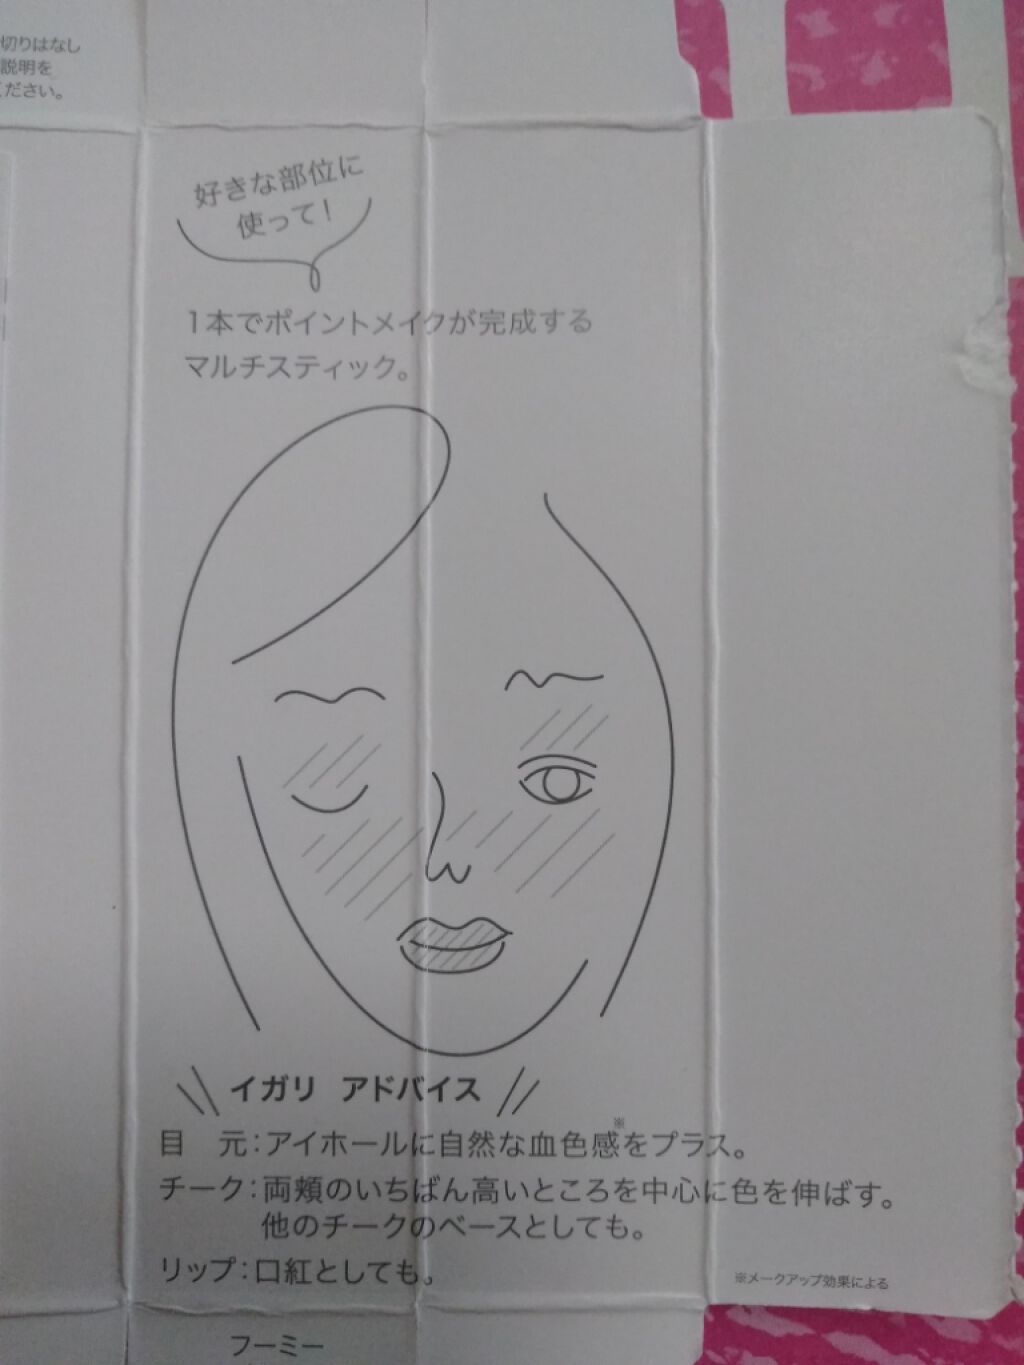 切りはなし
説明を
ください。
好きな部位に
使って!
1本でポイントメイクが完成する
マルチスティック。
イガリ アドバイス
目 元:アイホールに自然な血色感※をプラス。
チーク:両頬のいちばん高いところを中心に色を伸ばす。
他のチークのベースとしても。
リップ:口紅としても。
※メークアップ効果による
フーミー